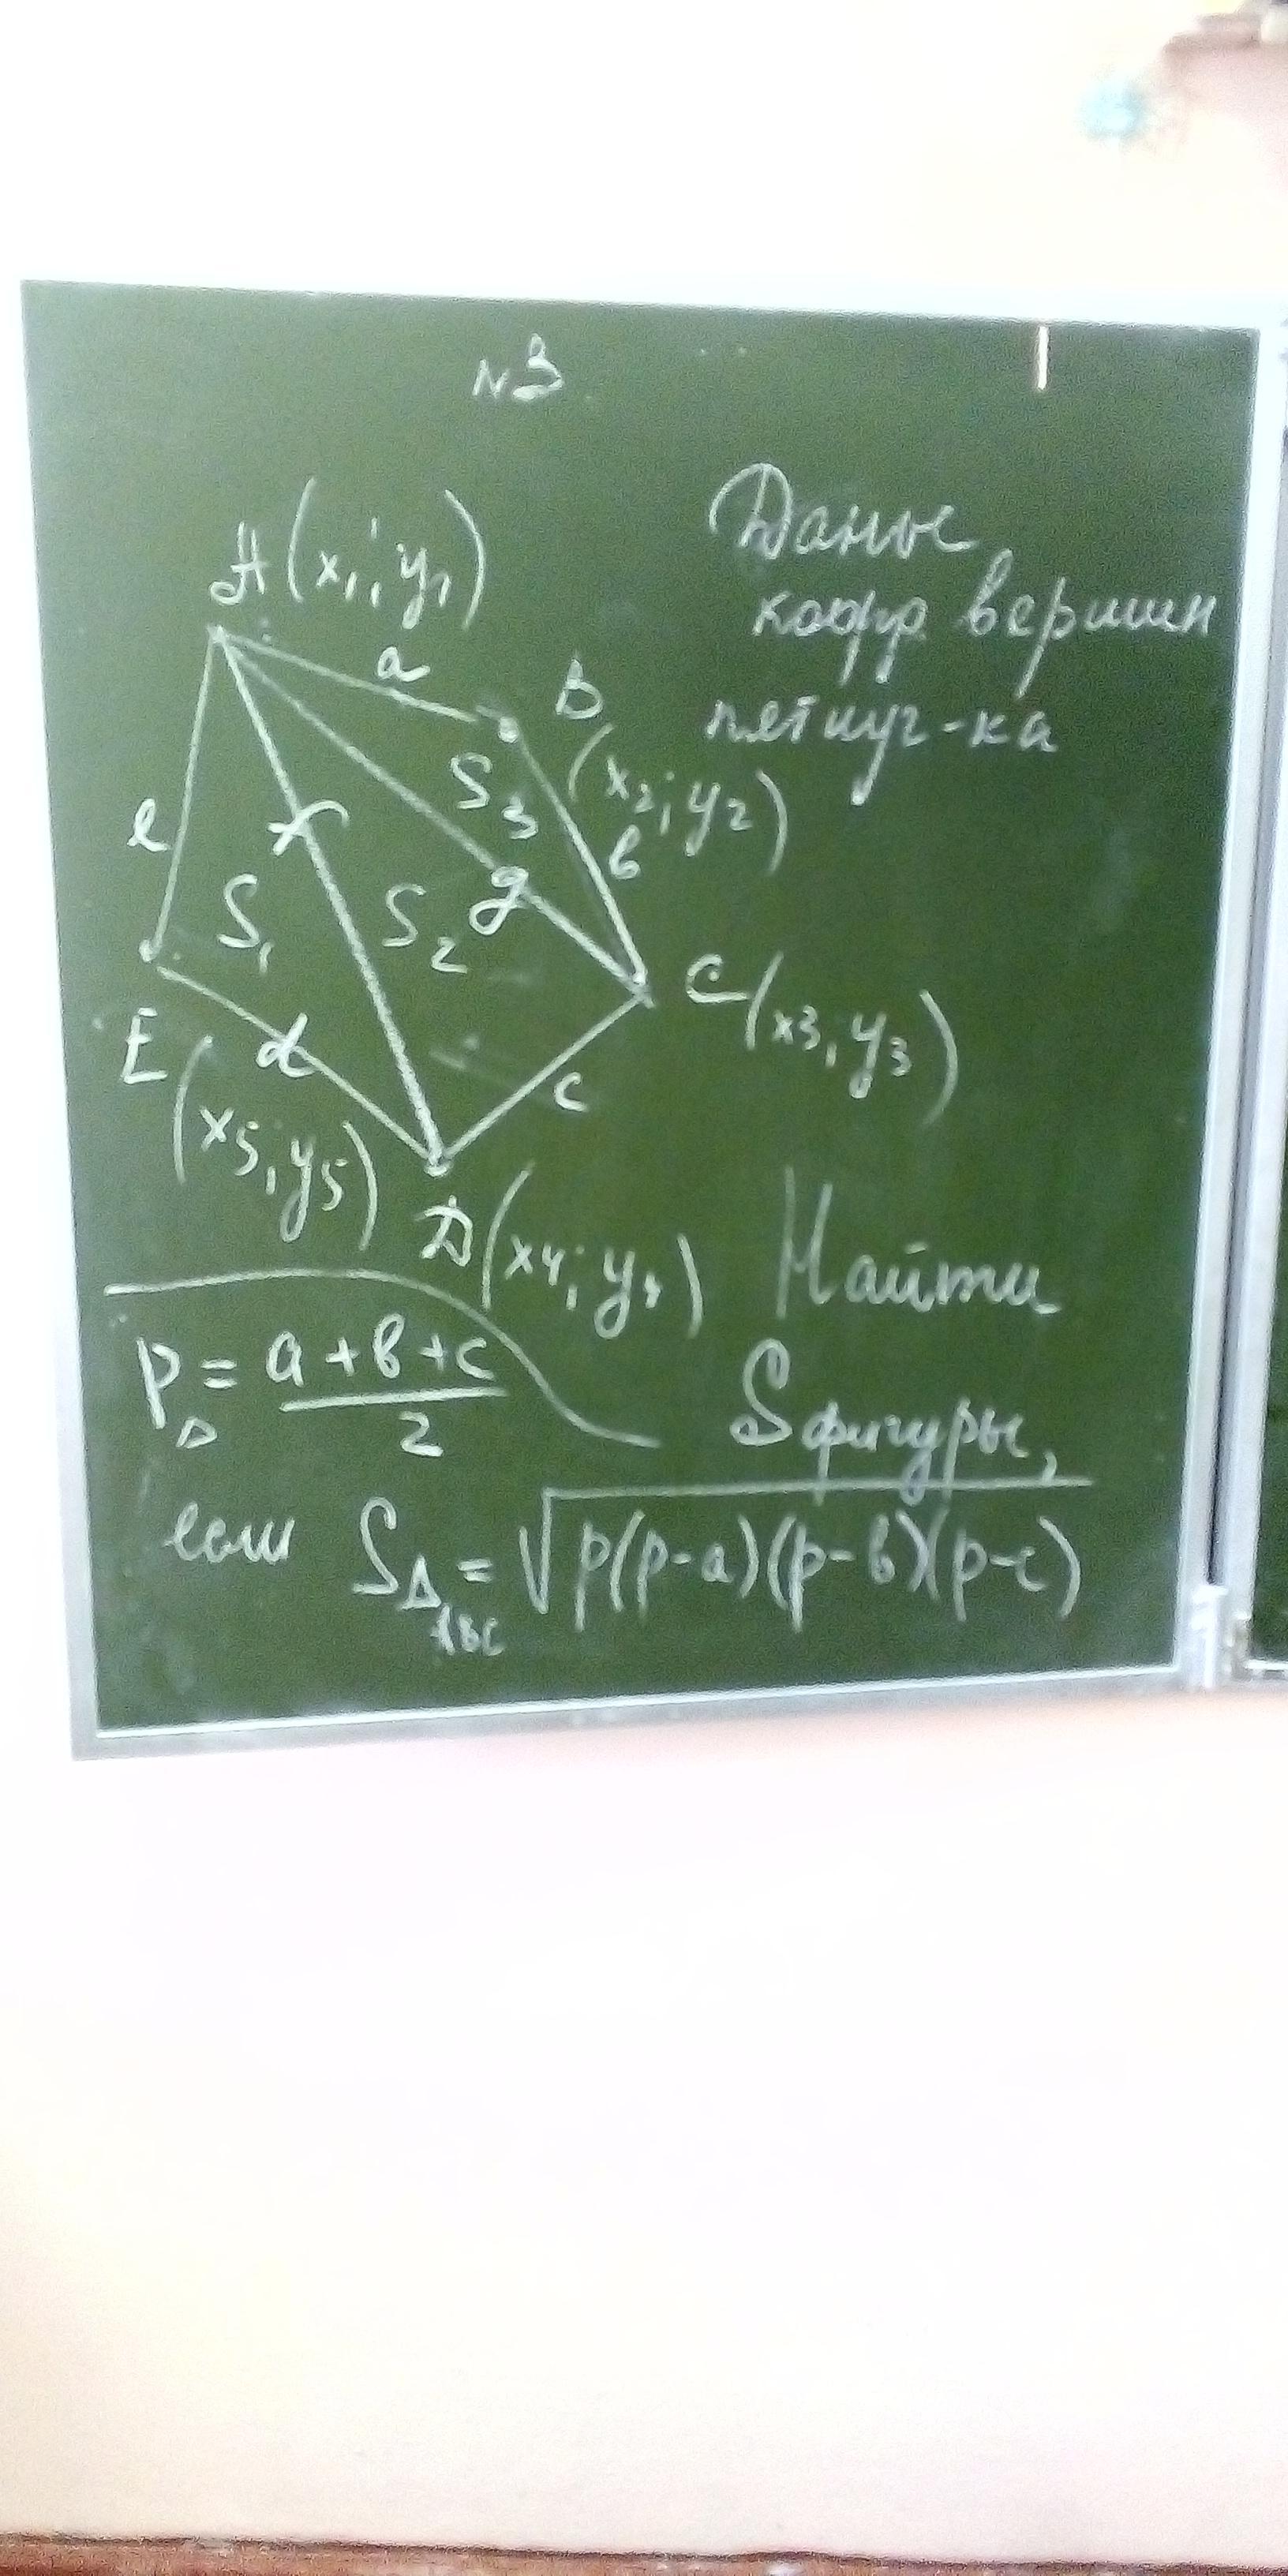 №3
A(x1; y1)
Даны
коор. вершин
пятиуг-ка
a
B
(x2; y2)
S3
в
e
f
g
S1
S2
C(x3; y3)
E
(x5; y5)
d
c
D(x4; y4)
Найти
S фигуры,
P△ = a+в+c
2
если S△ABC = √p(p-a)(p-в)(p-c)